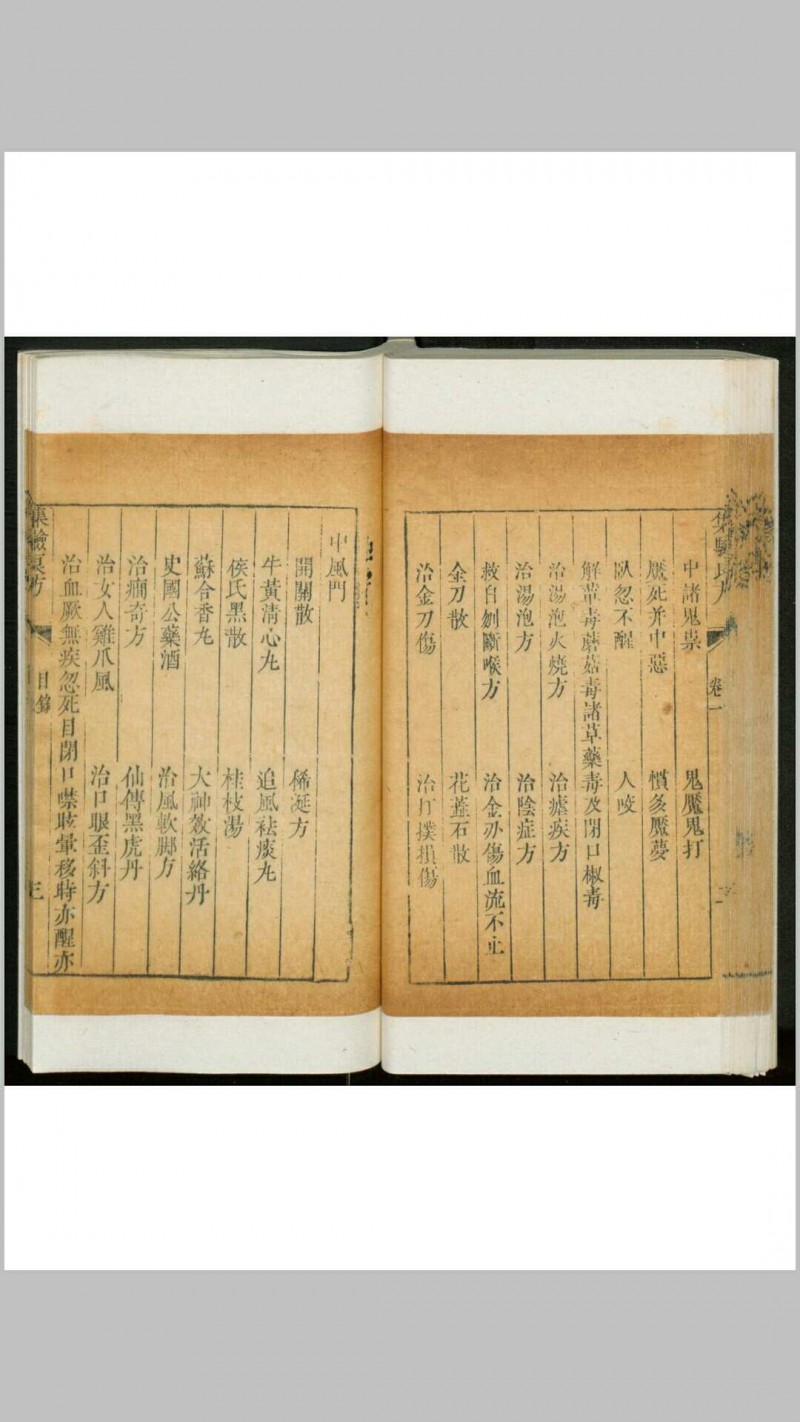 卷一
中諸鬼祟 鬼魘鬼打
魘死并中惡 慣多魘夢
臥忽不醒 人咬
解蕈毒蘑菇毒諸草藥毒及閉口椒毒
治湯泡火燒方 治瘧疾方
治湯泡方 治陰症方
救自刎斷喉方 治金刃傷血流不止
金刀散 花蕊石散
治金刃傷 治打撲損傷
中風門
開關散 稀涎方
牛黃清心丸 追風祛痰丸
侯氏黑散 桂枝湯
蘇合香丸 大神效活絡丹
史國公藥酒 治風軟脚方
治癇奇方 仙傳黑虎丹
治女人雞爪風 治口眼歪斜方
治血厥無疾忽死目閉口噤眩暈移時亦醒亦
集驗良方 目錄 三